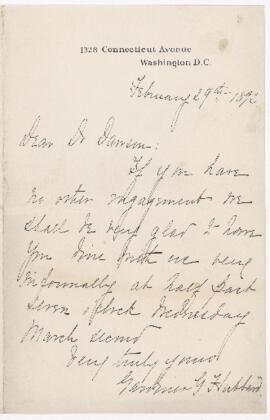 1328 Connecticut Avenue
Washington D.C.
February 29th 1892
Dear Dr Dawson:
If you have
no other engagement we
shall be very glad to have
you dine with us very
informally at half past
seven o'clock Wednesday
March second
Very truly yours
Gardiner G Hubbard